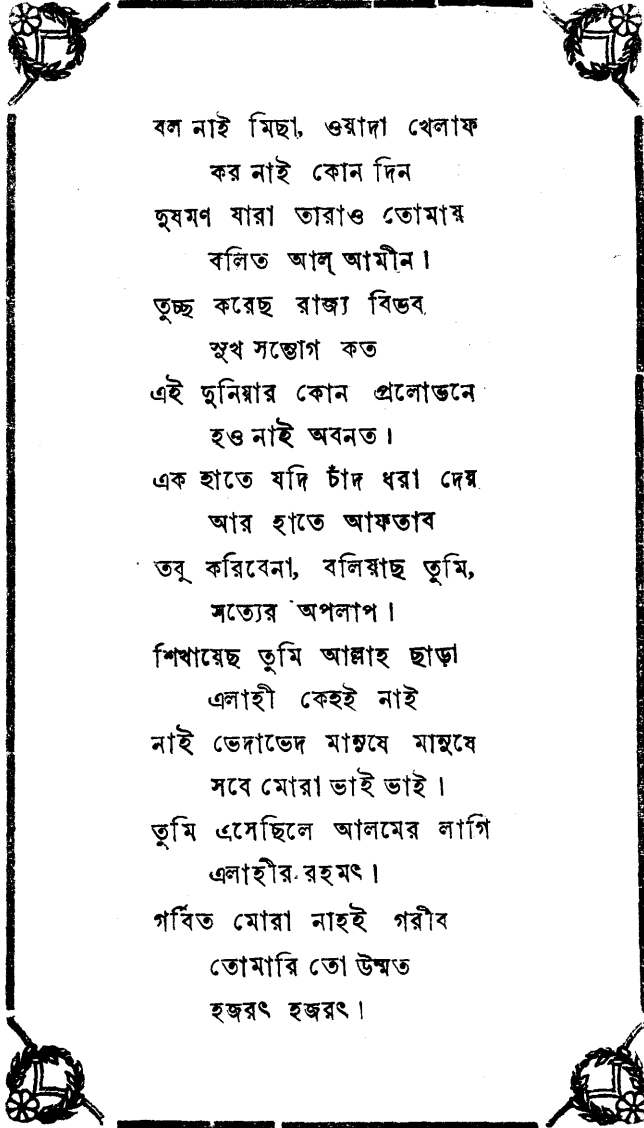 বল নাই মিছা, ওয়াদা খেলাফ
কর নাই কোন দিন
দুষমণ যারা তারাও তোমায়
বলিত আল্ আমীন।
তুচ্ছ করেছ রাজ্য বিভব
সুখ সম্ভোগ কত
এই দুনিয়ার কোন প্রলোভনে
হও নাই অবনত।
এক হাতে যদি চাঁদ ধরা দেয়
আর হাতে আফতাব
তবু করিবেনা, বলিয়াছ তুমি,
সত্যের অপলাপ।
শিখায়েছ তুমি আল্লাহ ছাড়া
এলাহী কেহই নাই
নাই ভেদাভেদ মানুষে মানুষে
সবে মোরা ভাই ভাই।
তুমি এসেছিলে আলমের লাগি
এলাহীর রহমৎ।
গর্বিত মোরা নাহই গরীব
তোমারি তো উম্মত
হজরৎ হজরৎ।